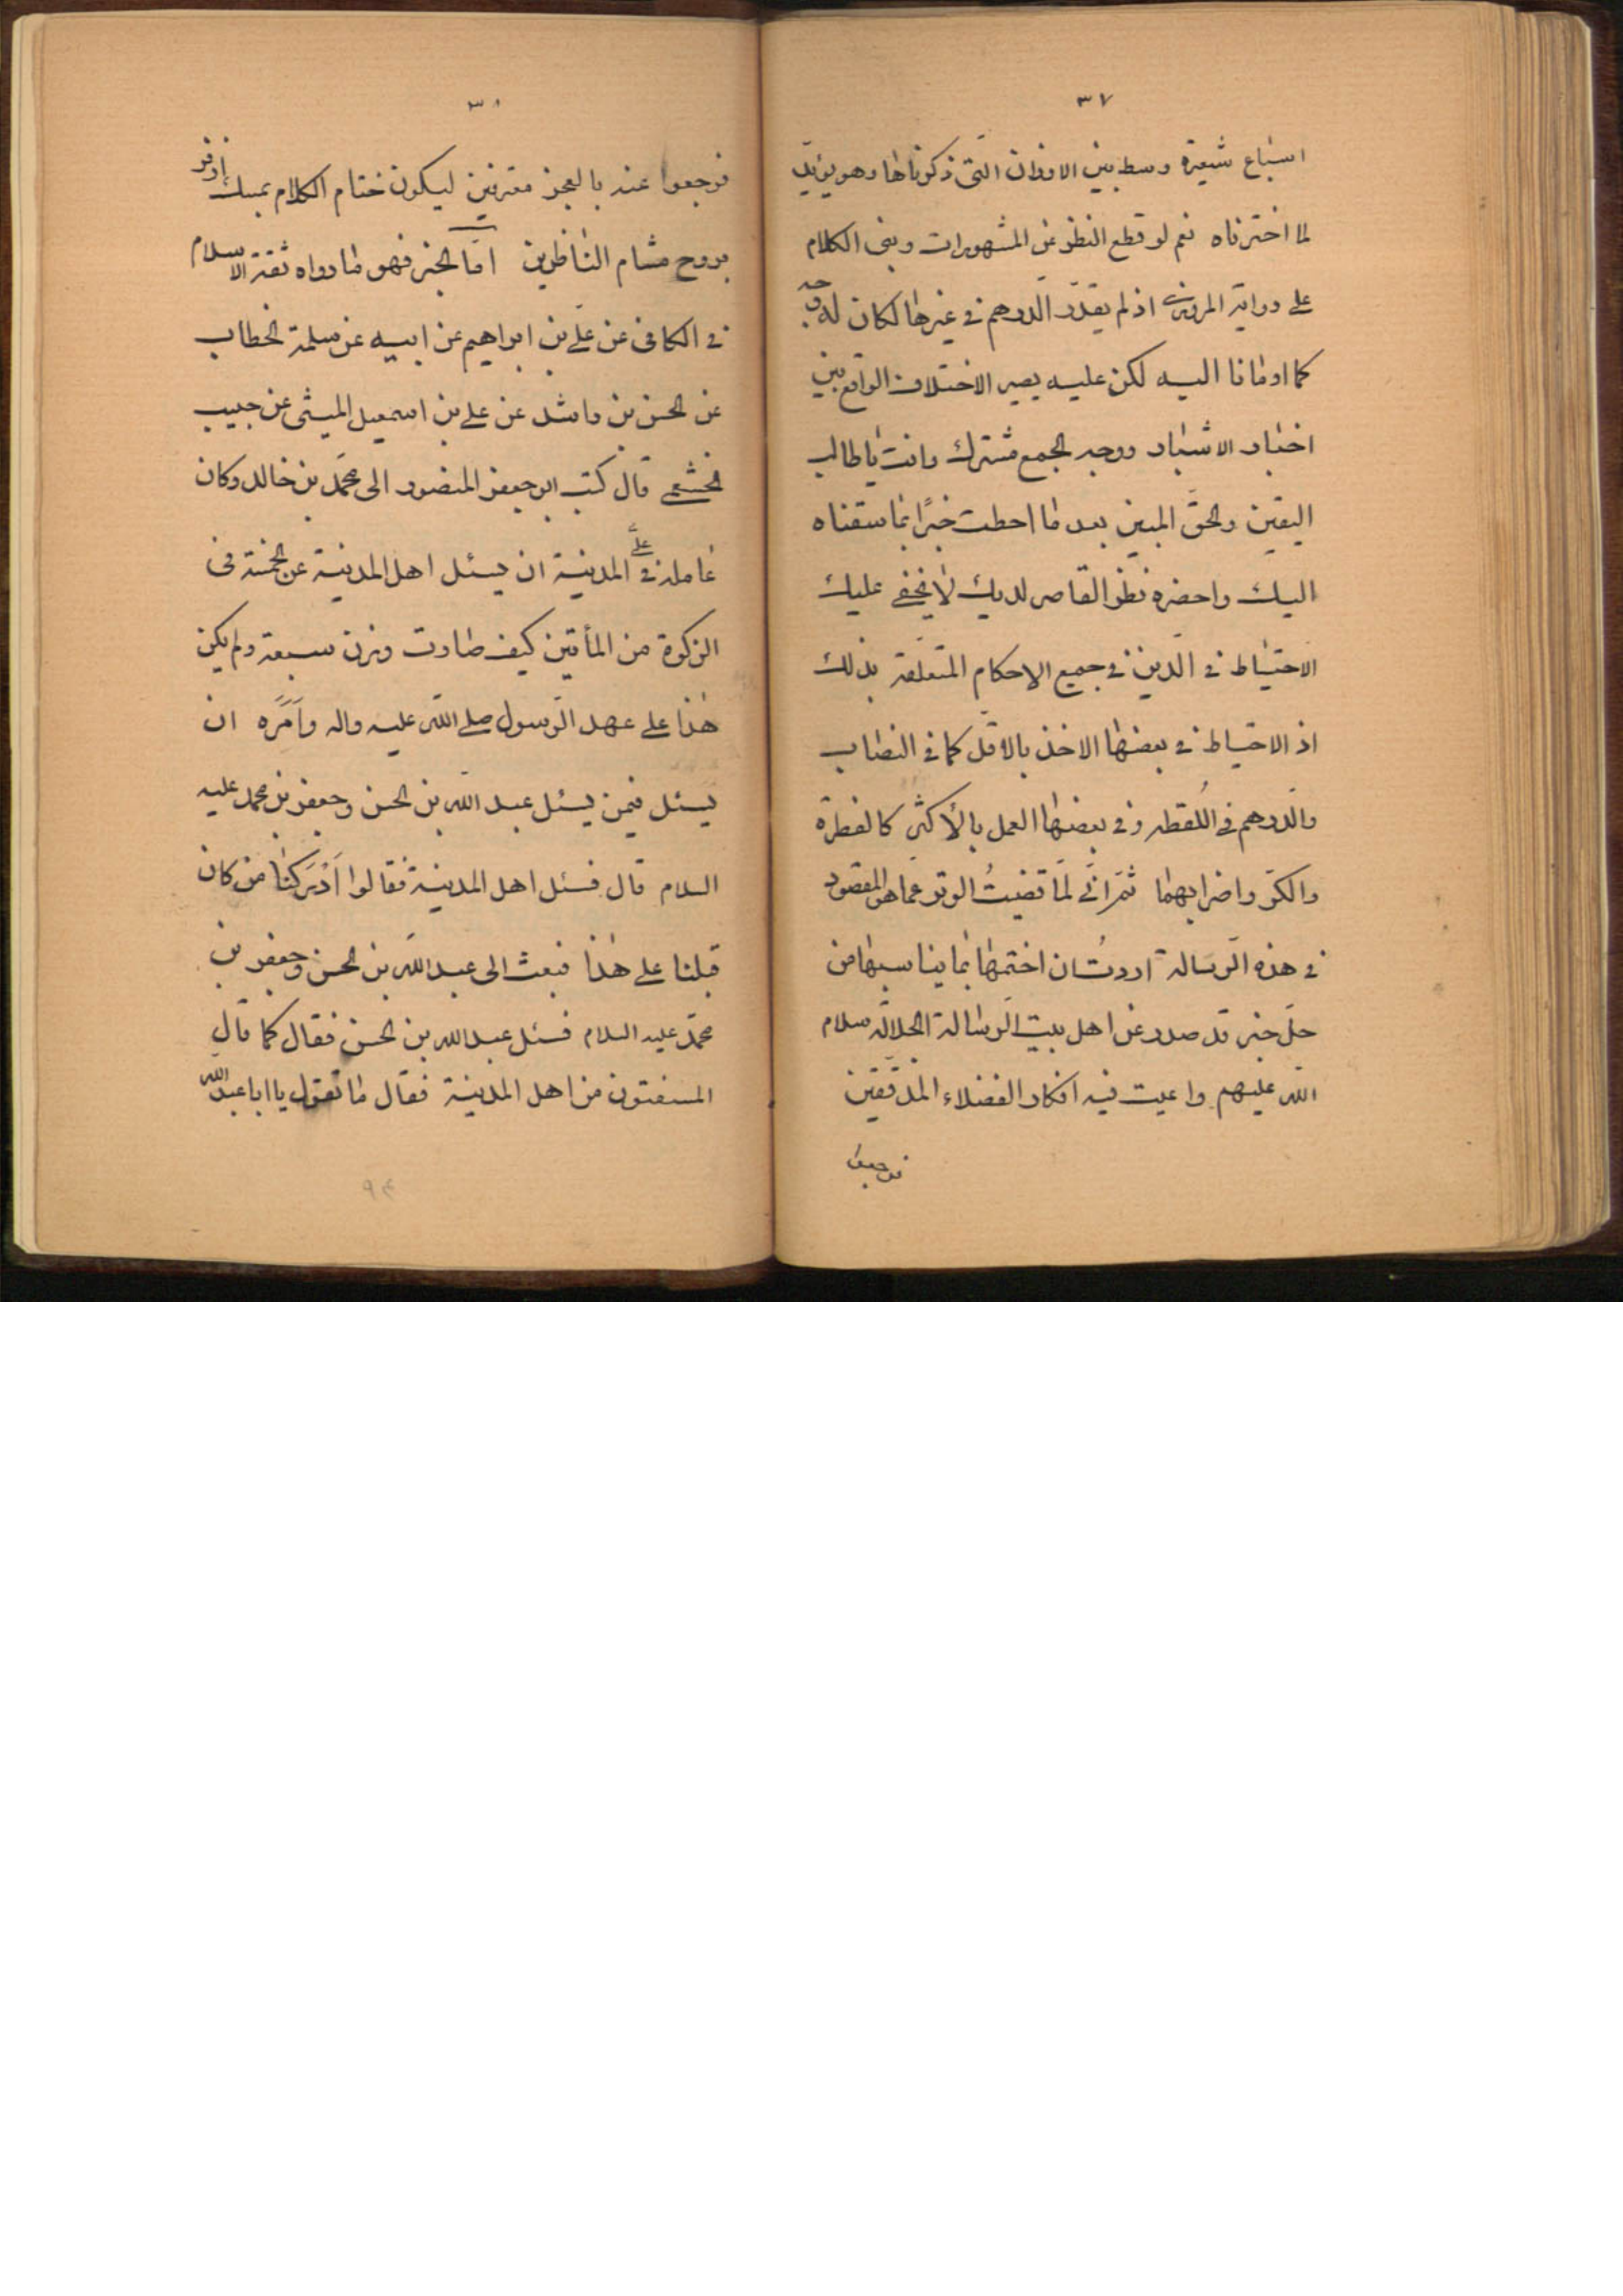 ٣٧
اسباع شعيرة وسط بين الاوزان التى ذكرناها وهو يؤيد
لما اخترناه نعم لو قطع النظر عن المشهورات وبنى الكلام
على رواية المروزى اذ لم يقدر الدرهم فى غيرها لكان له وجه
كما اومانا اليه لكن عليه يصير الاختلاف الواقع بين
اخبار الاشبار ووجه الجمع مشترك وانت يا طالب
اليقين والحق المبين بعد ما احطت خبرًا بما سقناه
اليك واحضره نظر القاصر لديك لا يخفى عليك
الاحتياط فى الدين فى جميع الاحكام المتعلقة بذلك
اذ الاحتياط فى بعضها الاخذ بالاقل كما فى النصاب
والدرهم فى اللقطه وفى بعضها العمل بالأكثر كالفطرة
والكر واضرابهما ثم انى لما قضيتُ الوتر عما هو المقصود
فى هذه الرسالة اردتُ ان اختمها بما يناسبها من
حل خبر قد صدر عن اهل بيت الرسالة الجلالة سلام
الله عليهم واعيت فيه افكار الفضلاء المدققين
فرجعوا
٣٨
فرجعوا عنه بالعجز معترفين ليكون ختام الكلام بمسك اذفر
يروح مشام الناظرين امّا الخبر فهو ما رواه ثقة الاسلام
فى الكافى عن على بن ابراهيم عن ابيه عن سلمة الخطاب
عن الحسن بن راشد عن على بن اسمعيل الميثمى عن حبيب
الخثعمى قال كتب ابو جعفر المنصور الى محمد بن خالد وكان
عامله فى على المدينة ان يسئل اهل المدينة عن الخمسة فى
الزكوة من المأتين كيف صارت وزن سبعة ولم يكن
هذا على عهد الرسول صلى الله عليه واله وأَمَرَه ان
يسئل فيمن يسئل عبد الله بن الحسن وجعفر بن محمد عليه
السلام قال فسئل اهل المدينة فقالوا اَدْرَكنا من كان
قبلنا على هذا فبعث الى عبد الله بن الحسن وجعفر بن
محمد عليه السلام فسئل عبد الله بن الحسن فقال كما قال
المستفتون من اهل المدينة فقال ما تقول يا ابا عبد الله